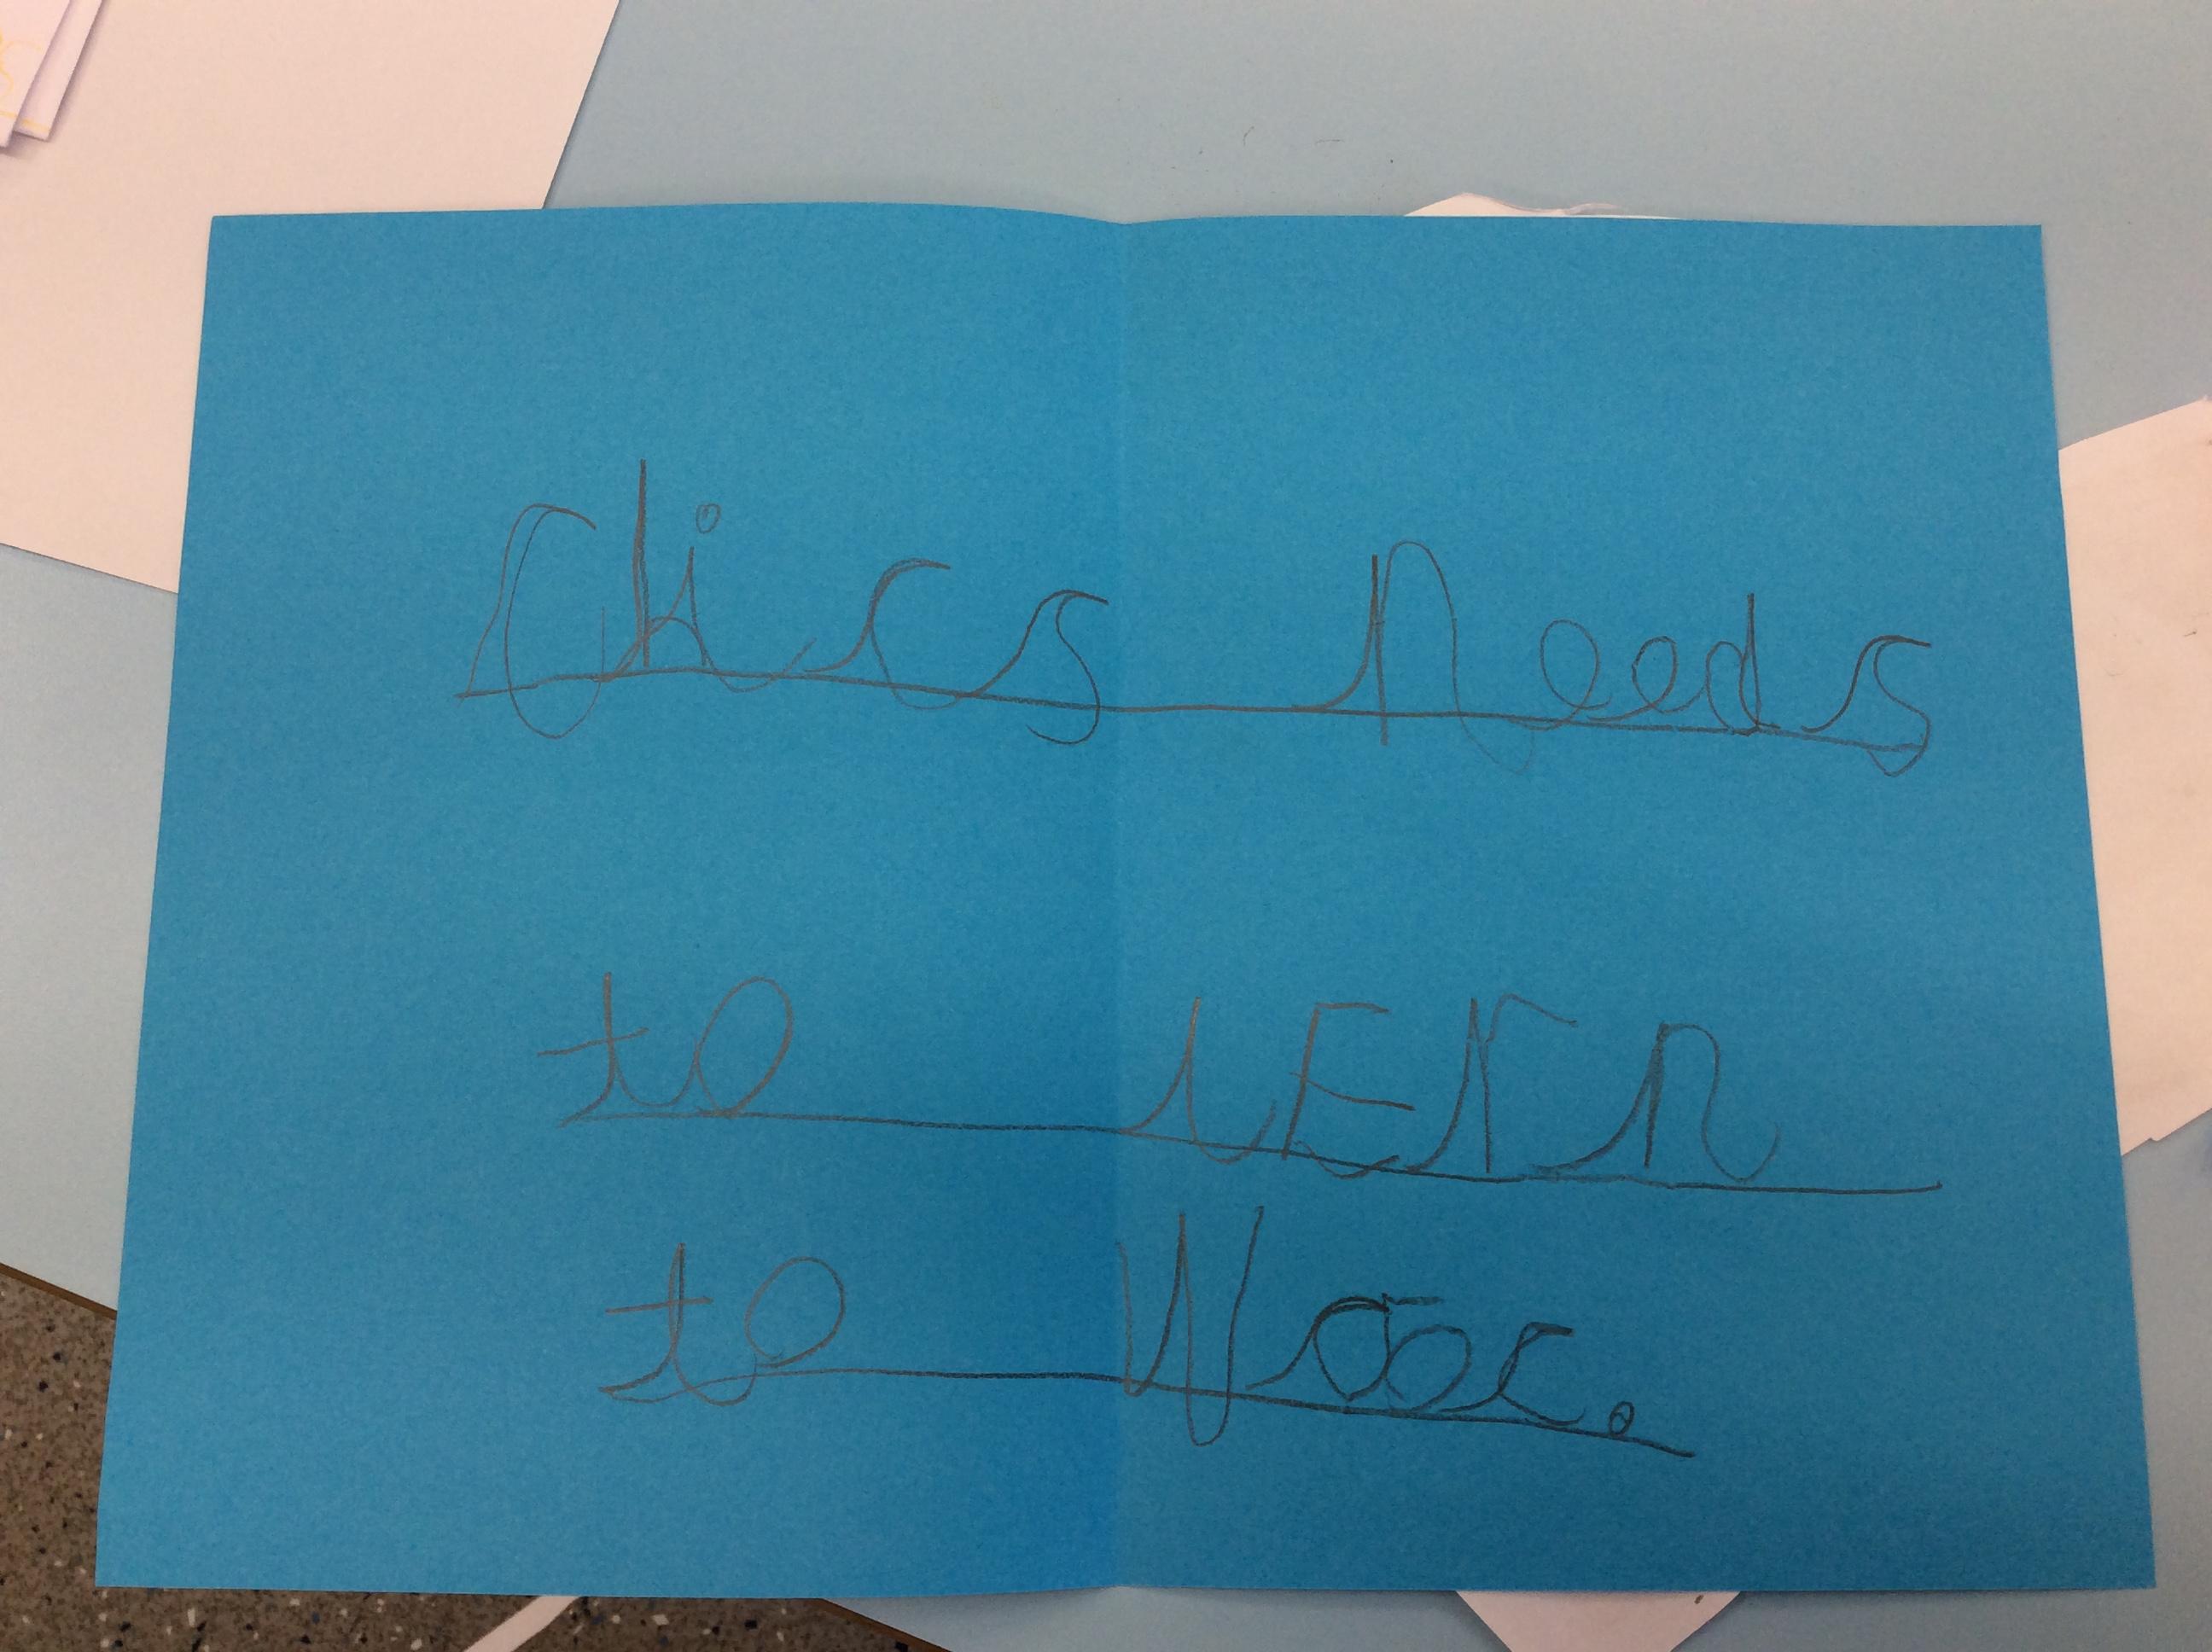 Chics needs
to lErn
to Wooc.